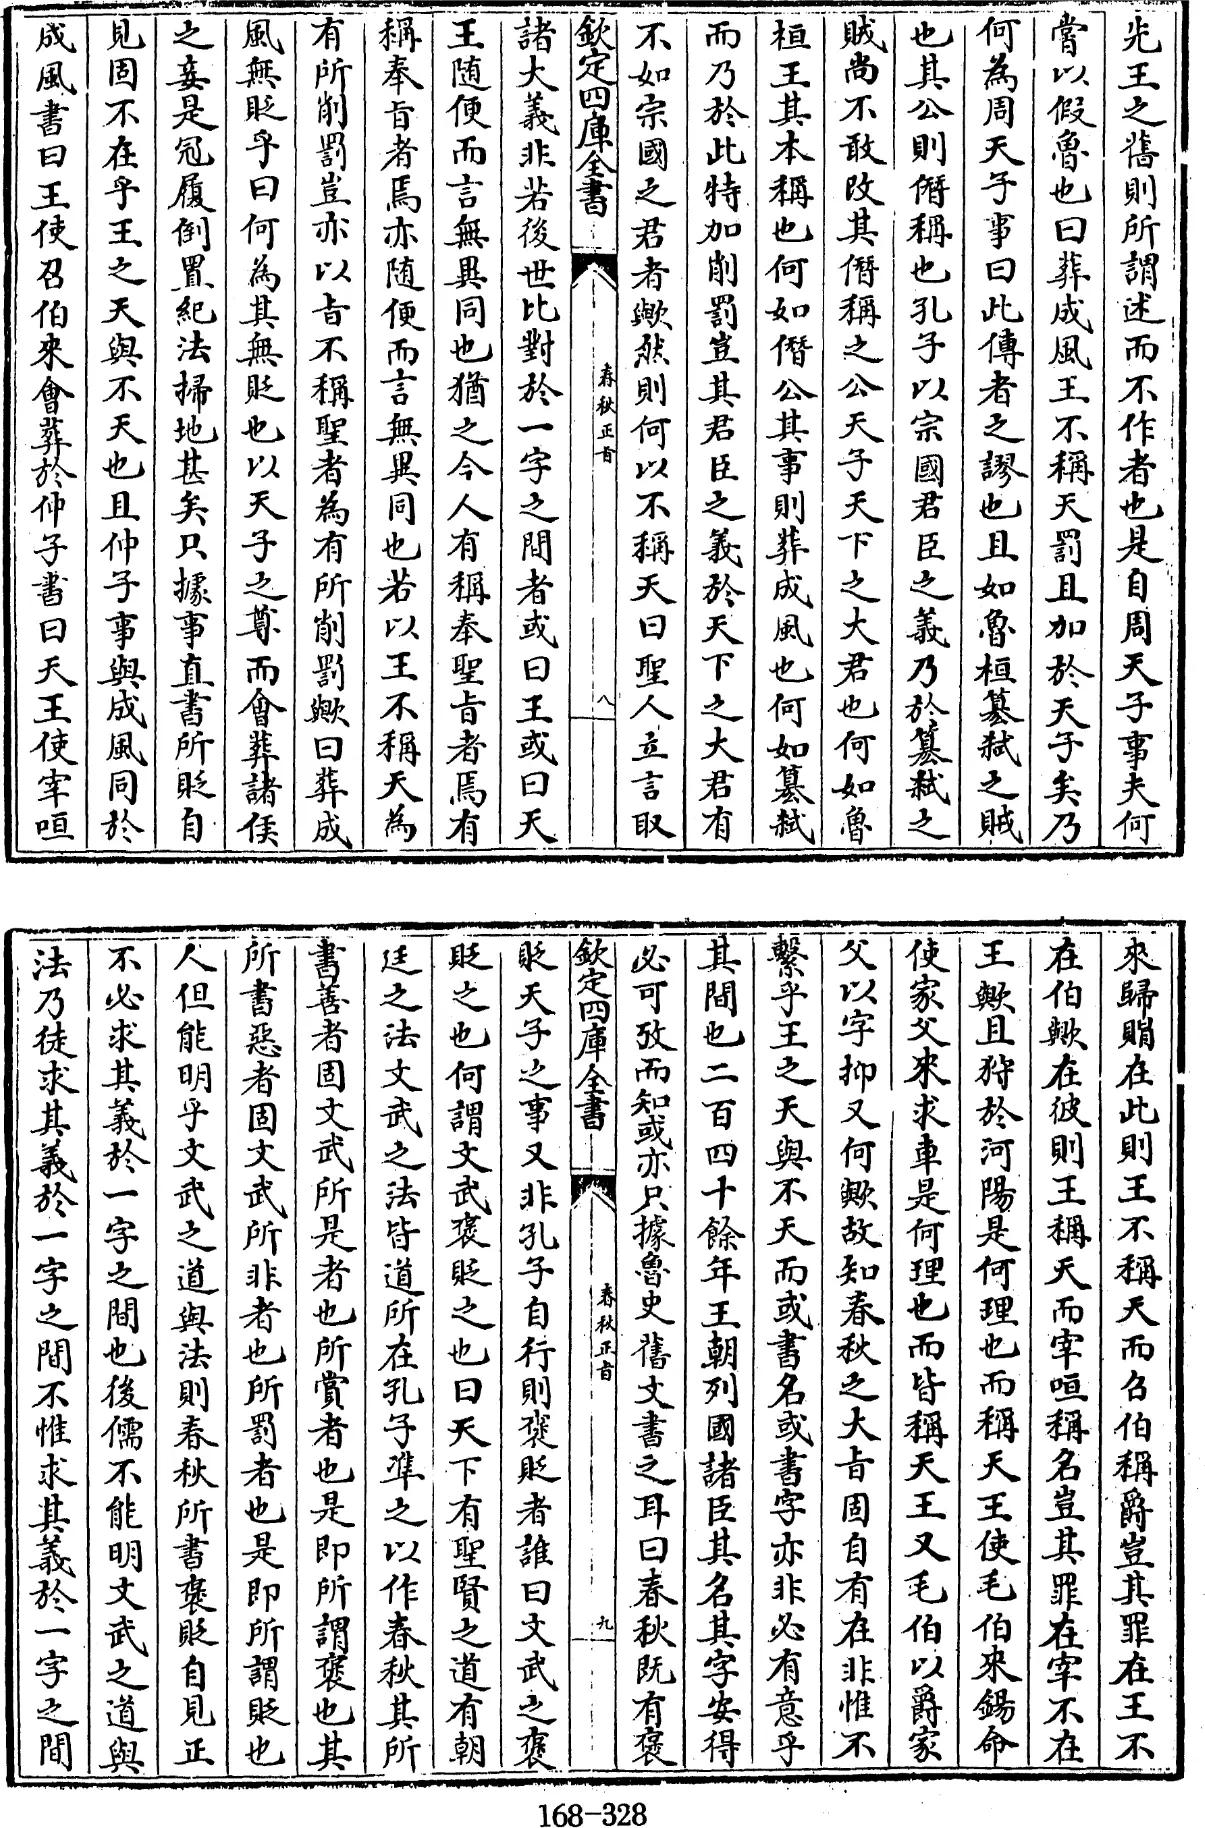 先王之舊則所謂述而不作者也是自周天子事夫何
嘗以假魯也曰葬成風王不稱天罰且加於天子矣乃
何為周天子事曰此傳者之謬也且如魯桓簒弑之賊
也其公則僭稱也孔子以宗國君臣之義乃於簒弑之
賊尚不敢改其僭稱之公天子天下之大君也何如魯
桓王其本稱也何如僭公其事則葬成風也何如簒弑
而乃於此特加削罰豈其君臣之義於天下之大君有
不如宗國之君者歟然則何以不稱天曰聖人立言取
欽定四庫全書
春秋正旨
八
諸大義非若後世比對於一字之間者或曰王或曰天
王隨便而言無異同也猶之今人有稱奉聖旨者焉有
稱奉旨者焉亦隨便而言無異同也若以王不稱天為
有所削罰豈亦以旨不稱聖者為有所削罰歟曰葬成
風無貶乎曰何為其無貶也以天子之尊而會葬諸侯
之妾是冠履倒置紀法掃地甚矣只據事直書所貶自
見固不在乎王之天與不天也且仲子事與成風同於
成風書曰王使召伯來會葬於仲子書曰天王使宰咺
來歸賵在此則王不稱天而召伯稱爵豈其罪在王不
在伯歟在彼則王稱天而宰咺稱名豈其罪在宰不在
王歟且狩於河陽是何理也而稱天王使毛伯來錫命
使家父來求車是何理也而皆稱天王又毛伯以爵家
父以字抑又何歟故知春秋之大旨固自有在非惟不
繫乎王之天與不天而或書名或書字亦非必有意乎
其間也二百四十餘年王朝列國諸臣其名其字安得
必可攷而知或亦只據魯史舊文書之耳曰春秋既有褒
欽定四庫全書
春秋正旨
九
貶天子之事又非孔子自行則褒貶者誰曰文武之褒
貶之也何謂文武褒貶之也曰天下有聖賢之道有朝
廷之法文武之法皆道所在孔子準之以作春秋其所
書善者固文武所是者也所賞者也是即所謂褒也其
所書惡者固文武所非者也所罰者也是即所謂貶也
人但能明乎文武之道與法則春秋所書褒貶自見正
不必求其義於一字之間也後儒不能明文武之道與
法乃徒求其義於一字之間不惟求其義於一字之間
168-328